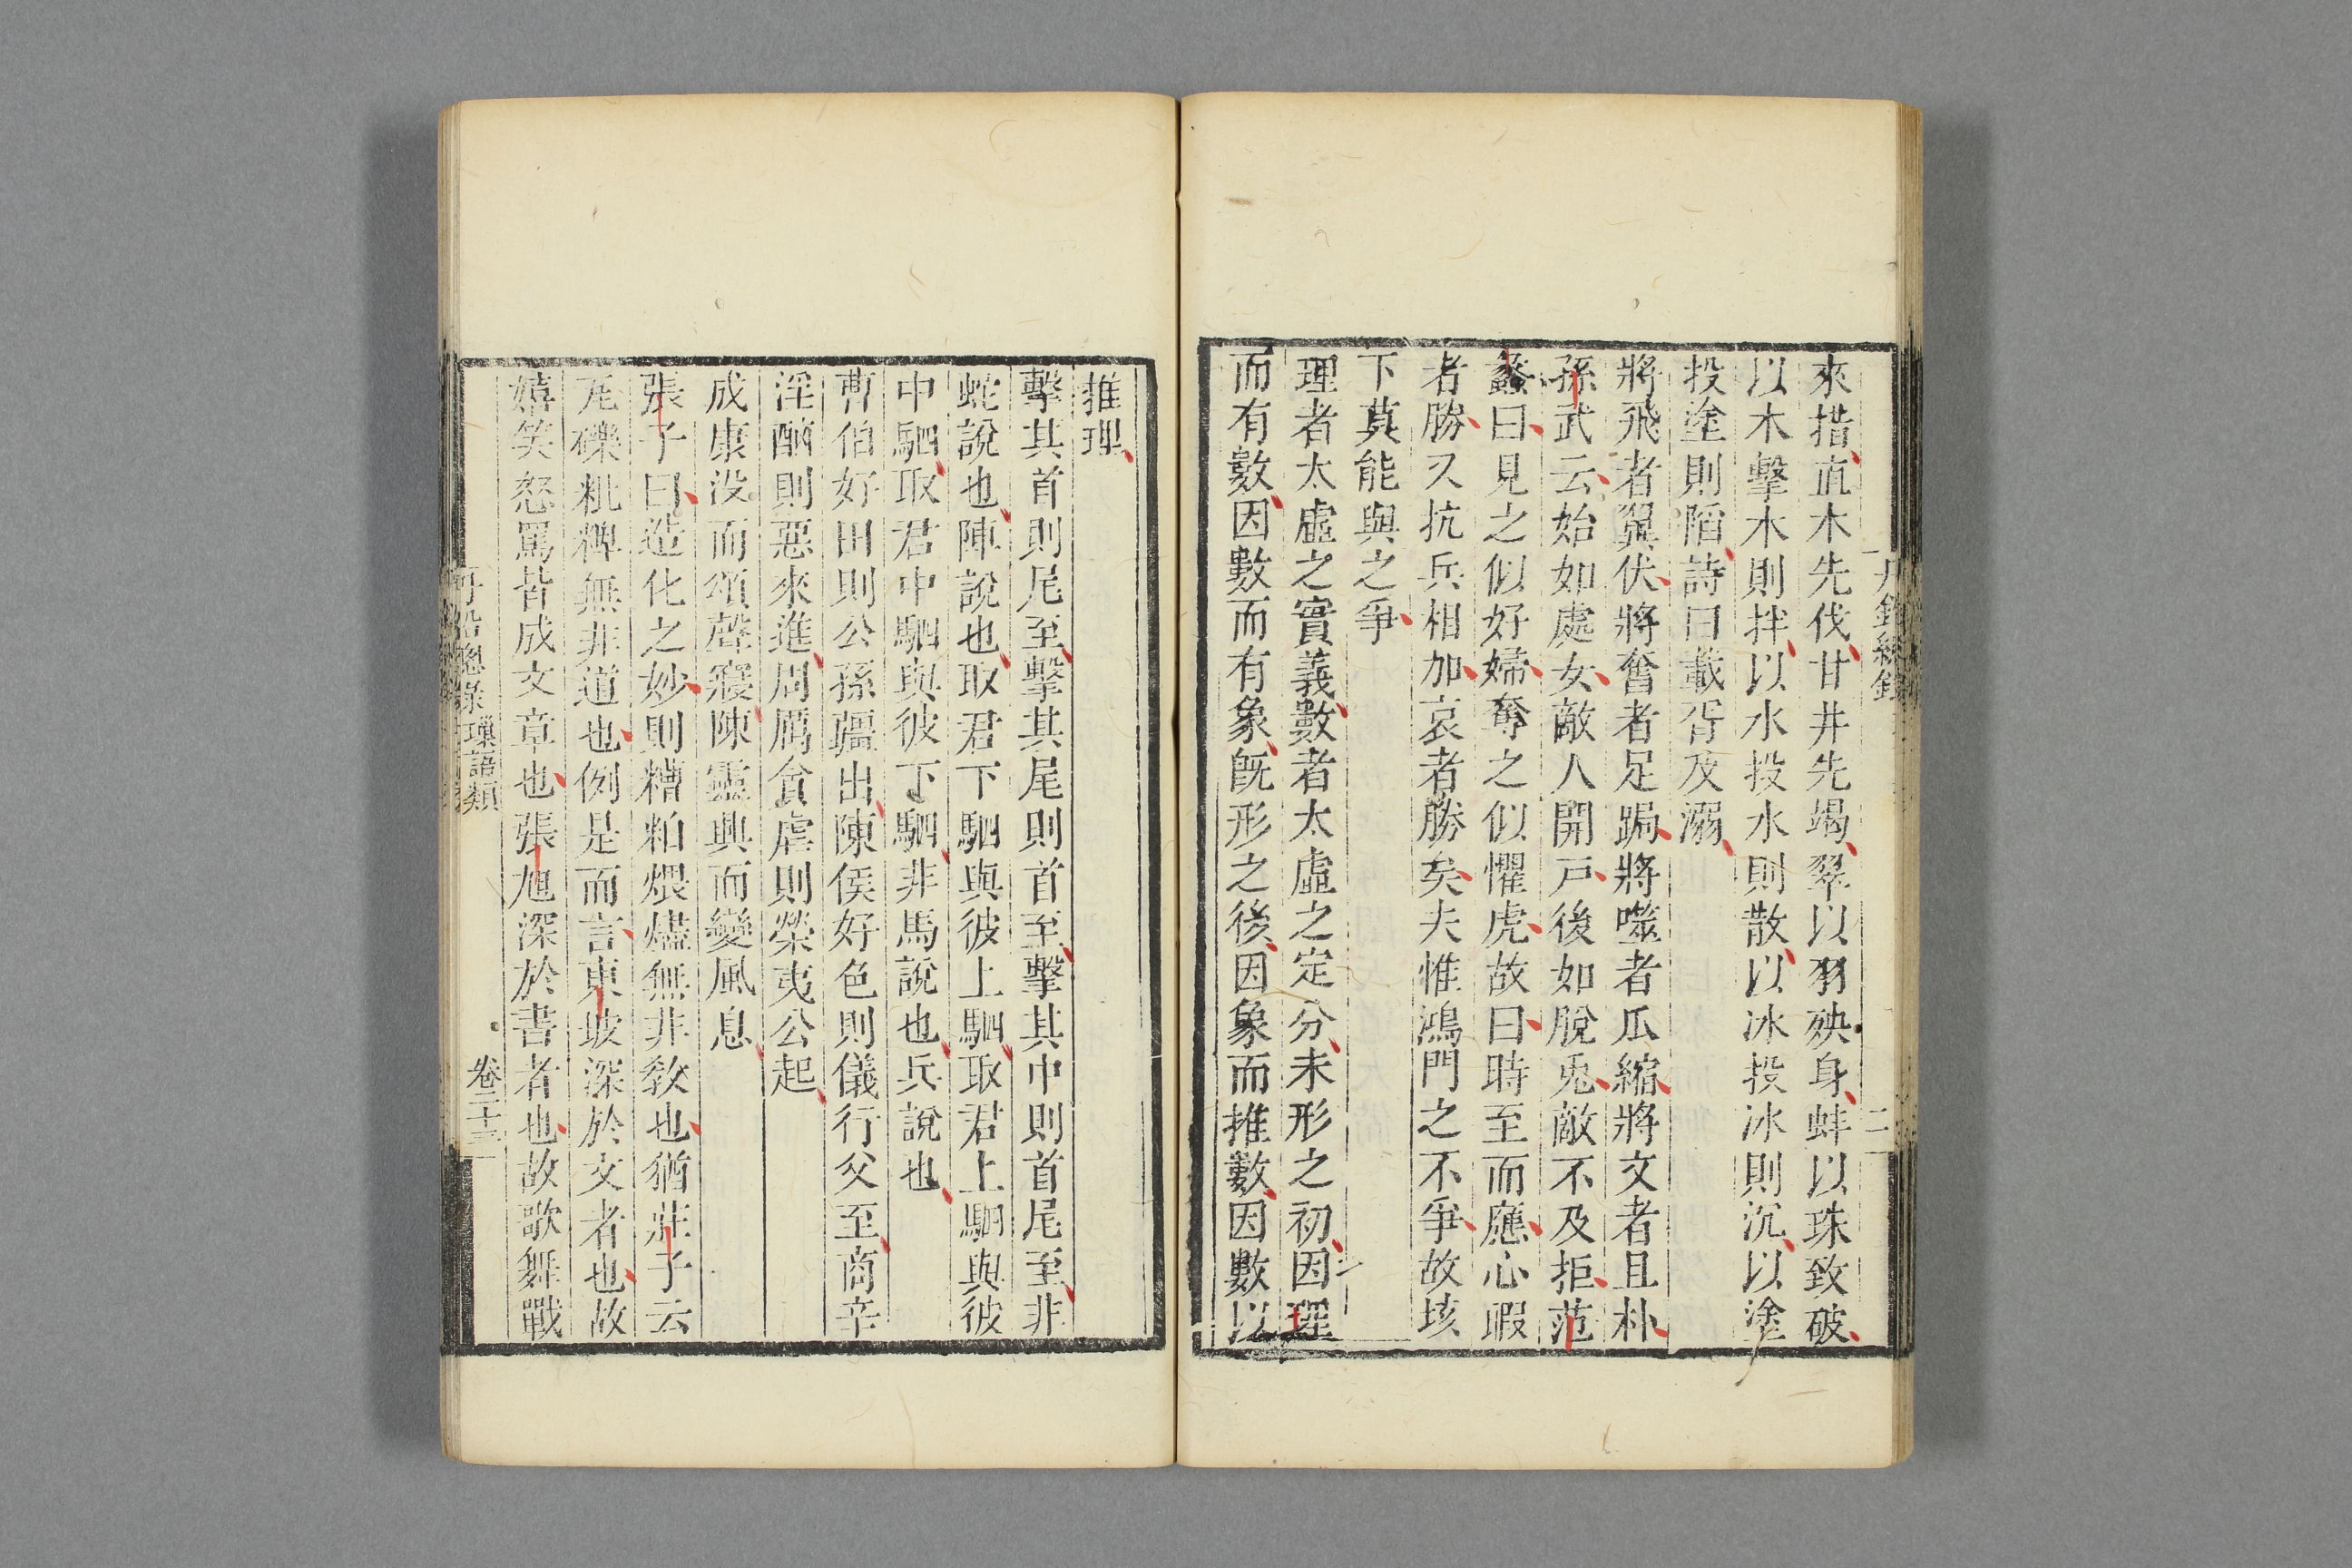 來措直木先伐甘井先竭翠以羽殃身蚌以珠致破
以木擊木則拌以水投水則散以冰投冰則沉以塗
投塗則陷詩曰載胥及溺
將飛者翼伏將奮者足跼將噬者爪縮將文者且朴
孫武云始如處女敵人開戸後如脫兎敵不及拒范
蠡曰見之似好婦奪之似懼虎故曰時至而應心暇
者勝又抗兵相加哀者勝矣夫惟鴻門之不爭故垓
下莫能與之爭
理者太虛之實義數者太虛之定分未形之初因理
而有數因數而有象旣形之後因象而推數因數以
推理
擊其首則尾至擊其尾則首至擊其中則首尾至非
蛇說也陣說也取君下駟與彼上駟取君上駟與彼
中駟取君中駟與彼下駟非馬說也兵說也
曹伯好田則公孫彊出陳侯好色則儀行父至商辛
淫酗則惡來進周厲貪虐則榮夷公起
成康没而頌聲寢陳靈興而變風息
張子曰造化之妙則糟粕煨燼無非敎也猶莊子云
瓦礫秕稗無非道也例是而言東坡深於文者也故
嬉笑怒罵皆成文章也張旭深於書者也故歌舞戰
丹鉛總錄
二
丹鉛總錄 璅語類 卷二十三